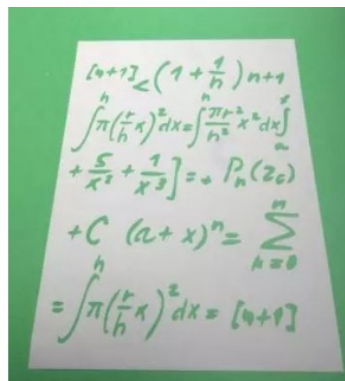 [n+1] < (1 + 1/n) n+1
∫ʰ π(r/h x)² dx = ∫ʰ πr²/h² x² dx ∫ₐˣ
+ 5/x² + 1/x³ ] = + Pₙ(z₀)
+ C (a + x)ⁿ = Σⁿ k=0
= ∫ʰ π(r/h x)² dx = [n+1]